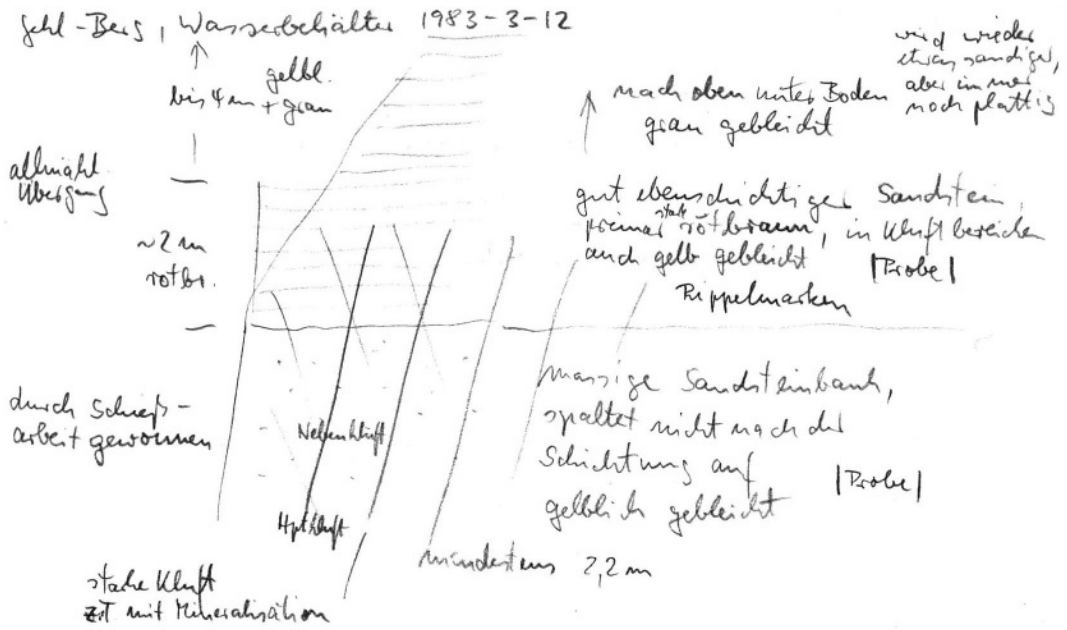 Gehl-Berg, Wasserbehälter 1983-3-12
gelbl.
bis 4 m + grau
allmähl.
Übergang
~2 m
rotbr.
durch Schieß-
arbeit gewonnen
Nebenkluft
Hptkluft
starke Kluft
z.T mit Mineralisation
wird wieder
etwas sandiger,
aber immer
noch plattig
nach oben unter Boden
grau gebleicht
gut ebenschichtiger Sandstein,
primär stark rotbraun, in Kluftbereichen
auch gelb gebleicht |Probe|
Rippelmarken
massige Sandsteinbank,
spaltet nicht nach der
Schichtung auf
gelblich gebleicht |Probe|
mindestens 2,2 m